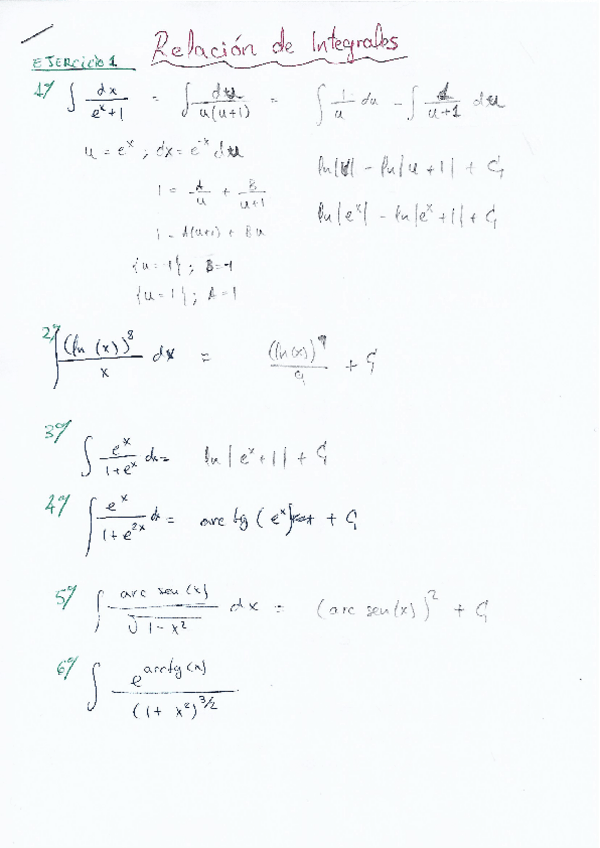 Relación de Integrales
EJERCICIO 1
1º/ ∫ dx/(eˣ+1) = ∫ du/(u(u+1)) = ∫ 1/u du - ∫ 1/(u+1) du
u = eˣ ; dx = e⁻ˣ du
ln|u| - ln|u+1| + C
1 = A/u + B/(u+1)
ln|eˣ| - ln|eˣ+1| + C
1 = A(u+1) + Bu
{u=-1} ; B=-1
{u=1} ; A=1
2º/ ∫ (ln(x))⁸/x dx = (ln(x))⁹/9 + C
3º/
∫ eˣ/(1+eˣ) dx = ln|eˣ+1| + C
4º/ ∫ eˣ/(1+e²ˣ) dx = arc tg(eˣ) + C
5º/ ∫ arc sen(x)/√(1-x²) dx = (arc sen(x))² + C
6º/ ∫ e^(arctg(x))/(1+x²)^(3/2)